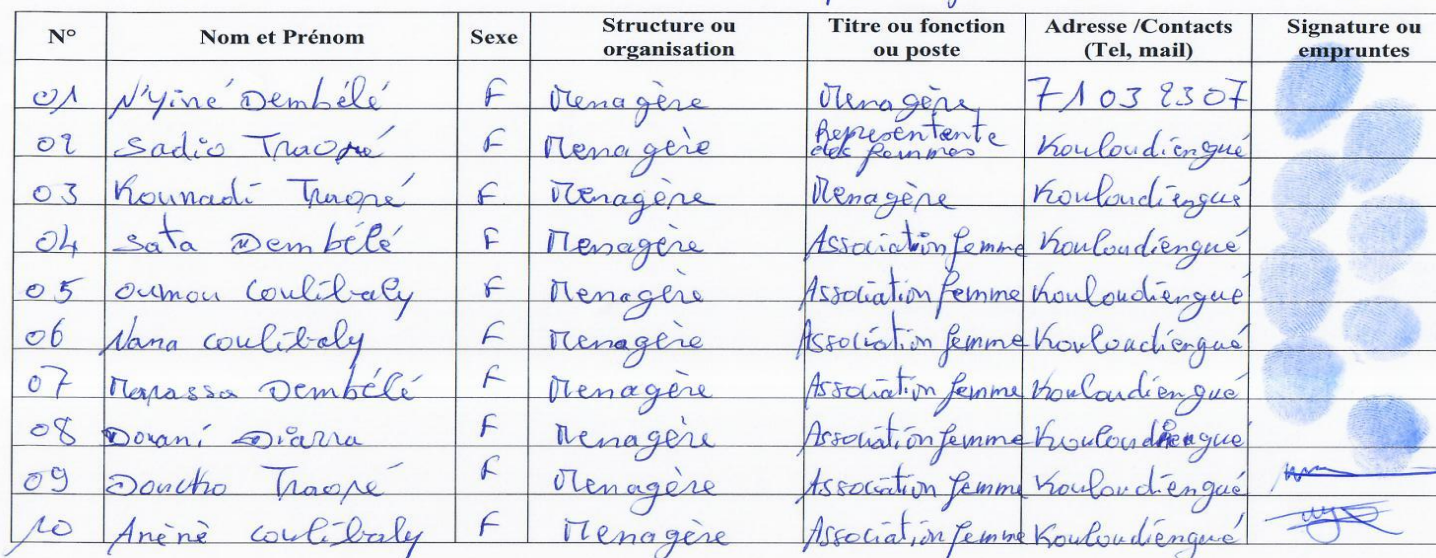 N° Nom et Prénom Sexe Structure ou organisation Titre ou fonction ou poste Adresse /Contacts (Tel, mail) Signature ou empruntes
01 N'yiné Dembélé F Menagère Menagère 71 03 23 07
02 Sadio Traoré F Menagère Representente des femmes Kouloudiengué
03 Kounadi Traoré F Menagère Menagère Kouloudiengué
04 Sata Dembélé F Menagère Association femme Kouloudiengué
05 Oumou Coulibaly F Menagère Association femme Kouloudiengué
06 Nana Coulibaly F Menagère Association femme Kouloudiengué
07 Marassa Dembélé F Menagère Association femme Kouloudiengué
08 Dorani Diarra F Menagère Association femme Kouloudiengué
09 Doncho Traoré F Menagère Association femme Kouloudiengué
10 Anènè Coulibaly F Menagère Association femme Kouloudiengué